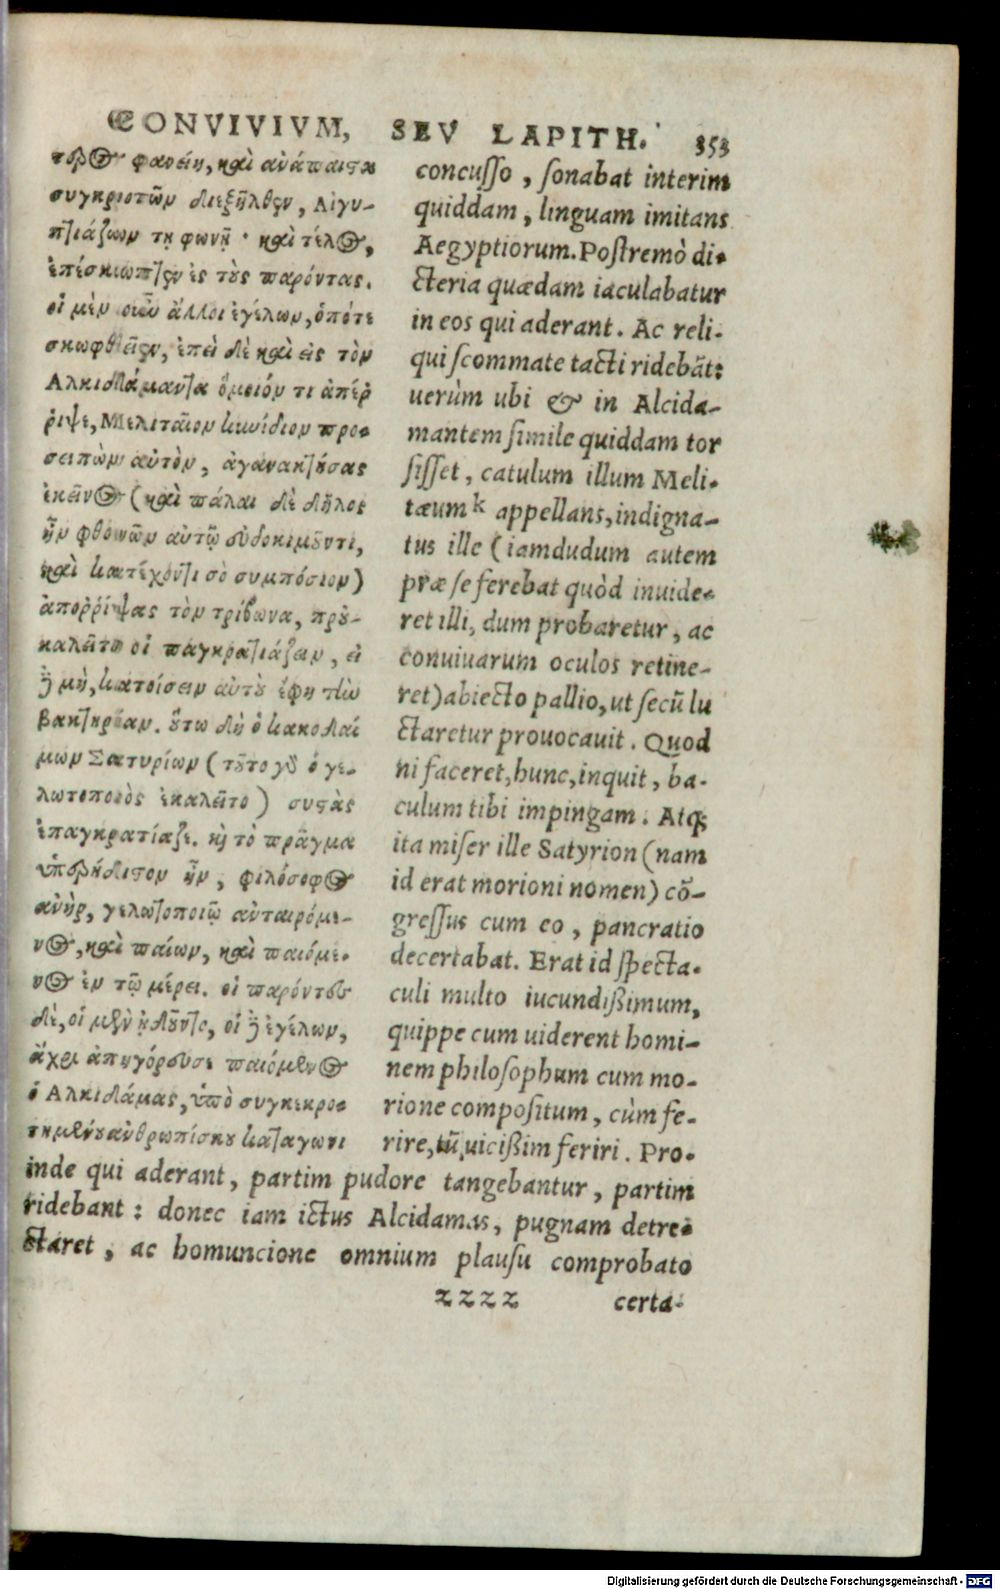 CONVIVIVM, SEV LAPITH. 353
τερος φανείη, καὶ ἀνάπαιστα
συγκροτῶν διεξῆλθεν, Αἰγυ-
πτιάζων τῇ φωνῇ· καὶ τέλος,
ἐπέσκωπτεν ἐς τοὺς παρόντας.
οἱ μὲν οὖν ἄλλοι ἐγέλων, ὁπότε
σκωφθεῖεν, ἐπεὶ δὲ καὶ εἰς τὸν
Αλκιδάμαντα ὅμοιόν τι ἀπέρ
ριψε, Μελιταῖον κυνίδιον προσ
ειπὼν αὐτὸν, ἀγανακτήσας
ἐκεῖνος (καὶ πάλαι δὲ δῆλος
ἦν φθονῶν αὐτῷ εὐδοκιμοῦντι,
καὶ κατέχοντι τὸ συμπόσιον)
ἀποῤῥίψας τὸν τρίβωνα, πρου-
καλεῖτο οἱ παγκρατιάζειν, εἰ
δὲ μὴ, κατοίσειν αὐτοῦ ἔφη τὴν
βακτηρίαν. οὕτω δὴ ὁ κακοδαί
μων Σατυρίων (τοῦτο γὰρ ὁ γε-
λωτοποιὸς ἐκαλεῖτο) συστὰς
ἐπαγκρατίαζε. καὶ τὸ πρᾶγμα
ὑπερήδιστον ἦν, φιλόσοφος
ἀνὴρ, γελωτοποιῷ ἀνταιρόμε-
νος, καὶ παίων, καὶ παιόμε-
νος ἐν τῷ μέρει. οἱ παρόντες
δὲ, οἱ μὲν ᾐδοῦντο, οἱ δὲ ἐγέλων,
ἄχρι ἀπηγόρευσε παιόμενος
ὁ Αλκιδάμας, ὑπὸ συγκεκρο-
τημένου ἀνθρωπίσκου καταγωνι
concusso, sonabat interim
quiddam, linguam imitans
Aegyptiorum. Postremò di-
cteria quædam iaculabatur
in eos qui aderant. Ac reli-
qui scommate tacti ridebāt:
uerùm ubi & in Alcida-
mantem simile quiddam tor
sisset, catulum illum Meli-
tæum k appellans, indigna-
tus ille (iamdudum autem
præ se ferebat quòd inuide-
ret illi, dum probaretur, ac
conuiuarum oculos retine-
ret) abiecto pallio, ut secū lu
ctaretur prouocauit. Quod
ni faceret, hunc, inquit, ba-
culum tibi impingam. Atq;
ita miser ille Satyrion (nam
id erat morioni nomen) cō-
gressus cum eo, pancratio
decertabat. Erat id specta-
culi multo iucundißimum,
quippe cum uiderent homi-
nem philosophum cum mo-
rione compositum, cùm fe-
rire, tū uicißim feriri. Pro-
inde qui aderant, partim pudore tangebantur, partim
ridebant: donec iam ictus Alcidamas, pugnam detre-
ctaret, ac homuncione omnium plausu comprobato
zzzz certa-
Digitalisierung gefördert durch die Deutsche Forschungsgemeinschaft - DFG